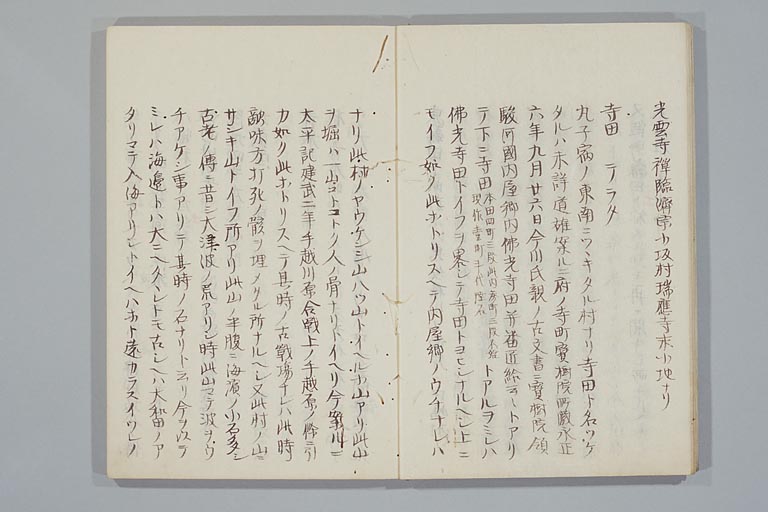 光雲寺禅臨濟宗小坂村瑞應寺末小地ナリ
寺田 テラタ
丸子宿ノ東南ニツヽキタル村ナリ寺田ト名ツケ
タルハ未詳道雄案ルニ府ノ寺町寳樹院所蔵永正
六年九月廿六日今川氏親ノ古文書ニ寳樹院領
駿河國内屋郷内佛光寺田并 トアリ
テ下ニ寺田 トアルヲミレハ
佛光寺田トイフヲ畧シテ寺田トヨヒシナルヘシ上ニ
モイフ如ク此ホトリスヘテ内屋郷ノウチナレハ
ナリ此村ノヤウケンシ山ハツ山トイヘル小山アリ此山
ヲ堀ハ一山コトコトク人ノ骨ナリトイヘリ今案ルニ
太平記建武二年手越川原合戦上ノ手越原ノ條ニ引
カ如ク此ホトリスヘテ其時ノ古戦場ナレハ此時
敵味方打死ノ骸ヲ埋メタル所ナルヘシ又此村ノ山ニ
サンキ山トイフ所アリ此山ノ半腹ニ海濱ノ小石多シ
古老ノ傳ニ昔シ大津波ノ荒アリシ時此山マテ波ヲウ
チアケシ事アリテ其時ノ石ナリト云リ今ヲ以テ
ミレハ海邉トハ大ニヘタレトモ古シヘハ大和田ノア
タリマテ入海アリシトイヘハホト遠カラスイツレノ